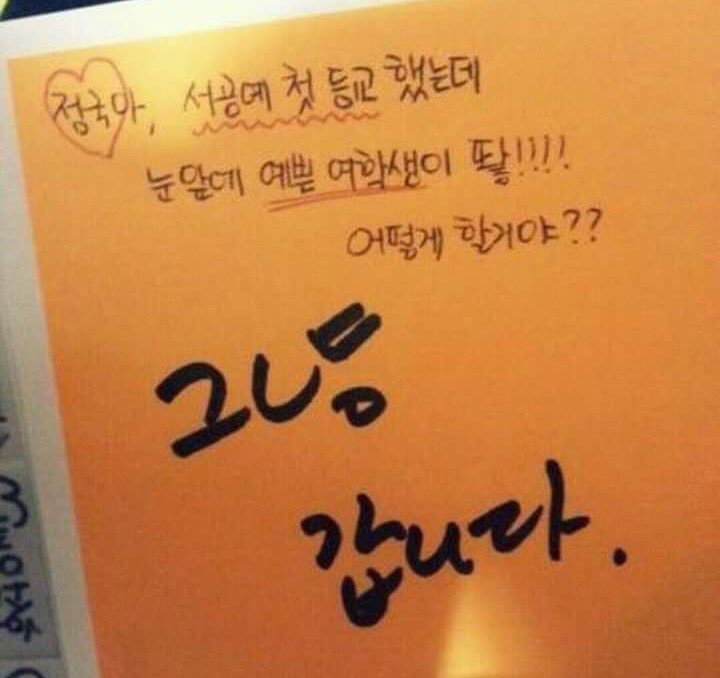 정국아, 서공예 첫 등교 했는데
눈앞에 예쁜 여학생이 딱!!!!
어떨게 할거야??
그냥
갑니다.